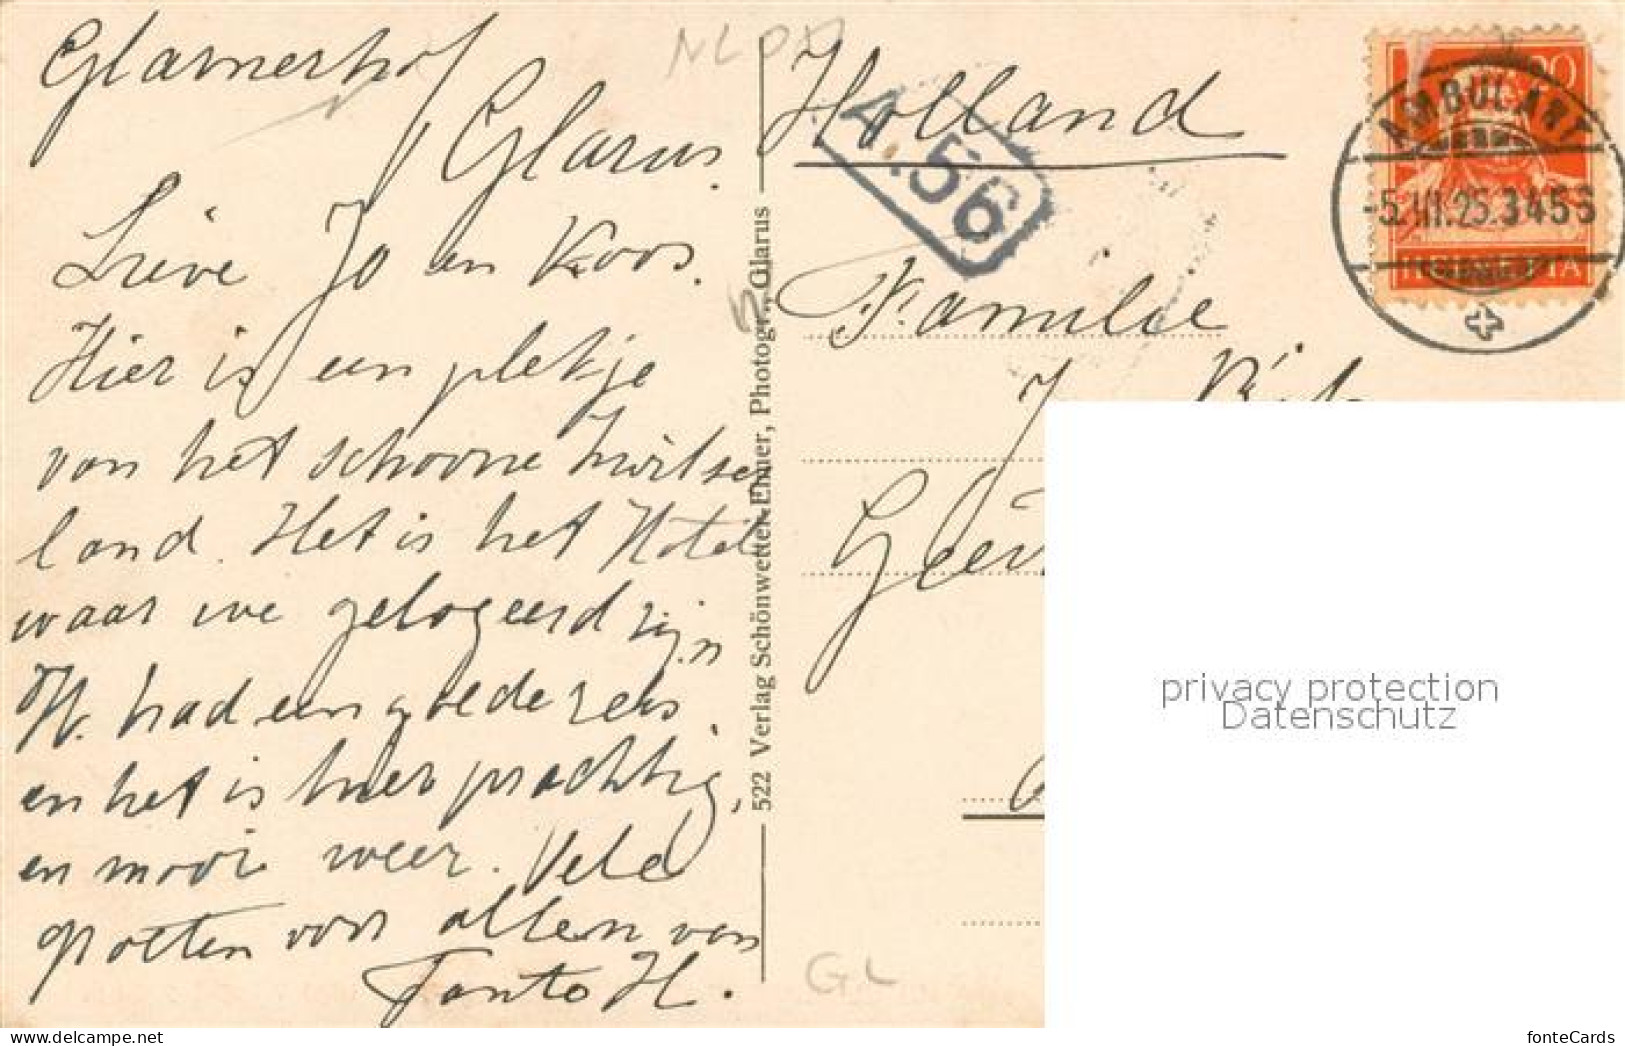 Glarnerhof
Glarus.
Lieve Jo en Koos.
Hier is een plekje
van het schoone Zwitser
land. Het is het Hotel
waar we gelogeerd zijn
W. had een goede reis.
en het is hier prachtig,
en mooi weer. Vele
groeten voor allen van
Tante H.
522 Verlag Schönwetter-Elmer, Photogr., Glarus
NLPA
Holland
A.56
Familie
J.
AMBULANT
-5.III.25. 3456
HELVETIA
20
GL
privacy protection
Datenschutz
fonteCards